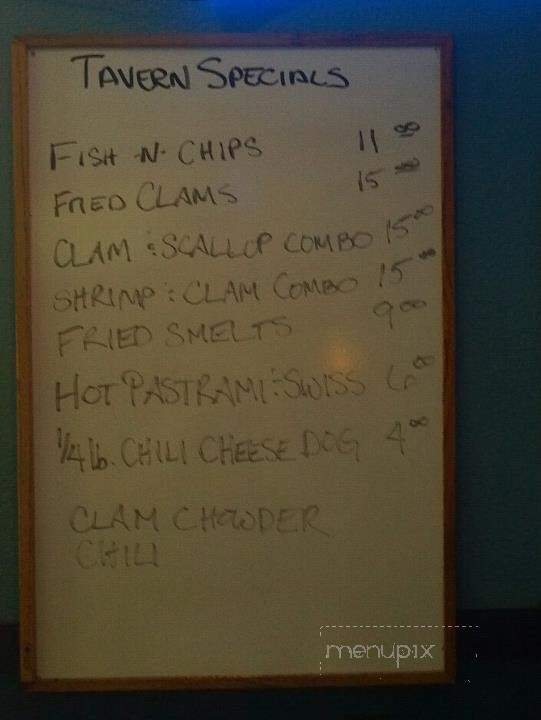 TAVERN SPECIALS
FISH -N- CHIPS 11 00
FRIED CLAMS 15 00
CLAM & SCALLOP COMBO 15 00
SHRIMP & CLAM COMBO 15 00
FRIED SMELTS 9 00
HOT PASTRAMI & SWISS 6 00
1/4 lb. CHILI CHEESE DOG 4 00
CLAM CHOWDER
CHILI
menupix